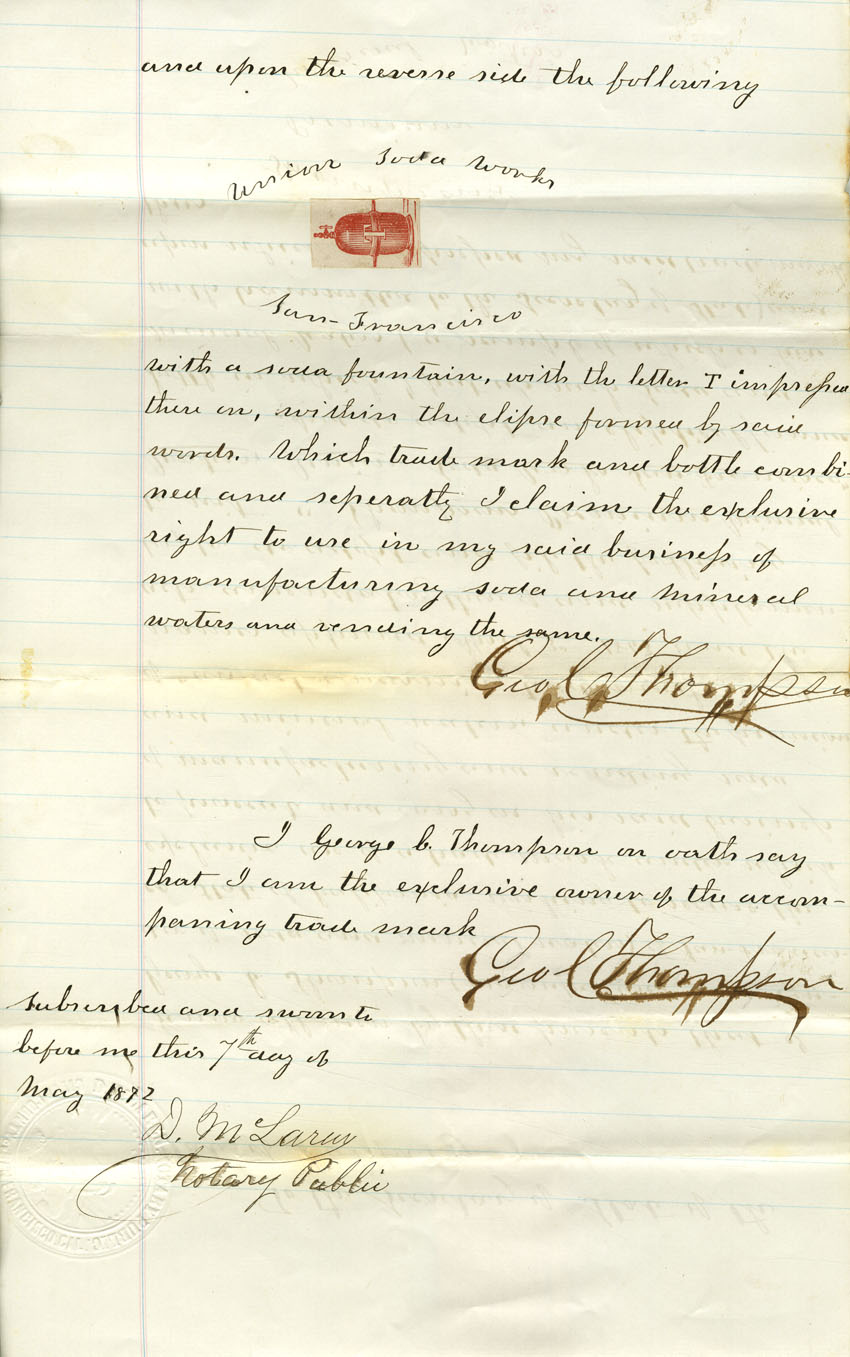 and upon the reverse side the following
Union Soda Works
T
San-Francisco
with a soda fountain, with the letter T impressed
there on, within the elipse formed by said
words. Which trade mark and bottle combi-
ned and seperatly I claim the exclusive
right to use in my said business of
manufacturing soda and mineral
waters and vending the same.
Geo C Thompson
I George C. Thompson on oath say
that I am the exclusive owner of the accom-
paning trade mark
Geo C Thompson
Subscribed and sworn to
before me this 7th day of
May 1872
D. McLaren
Notary Public